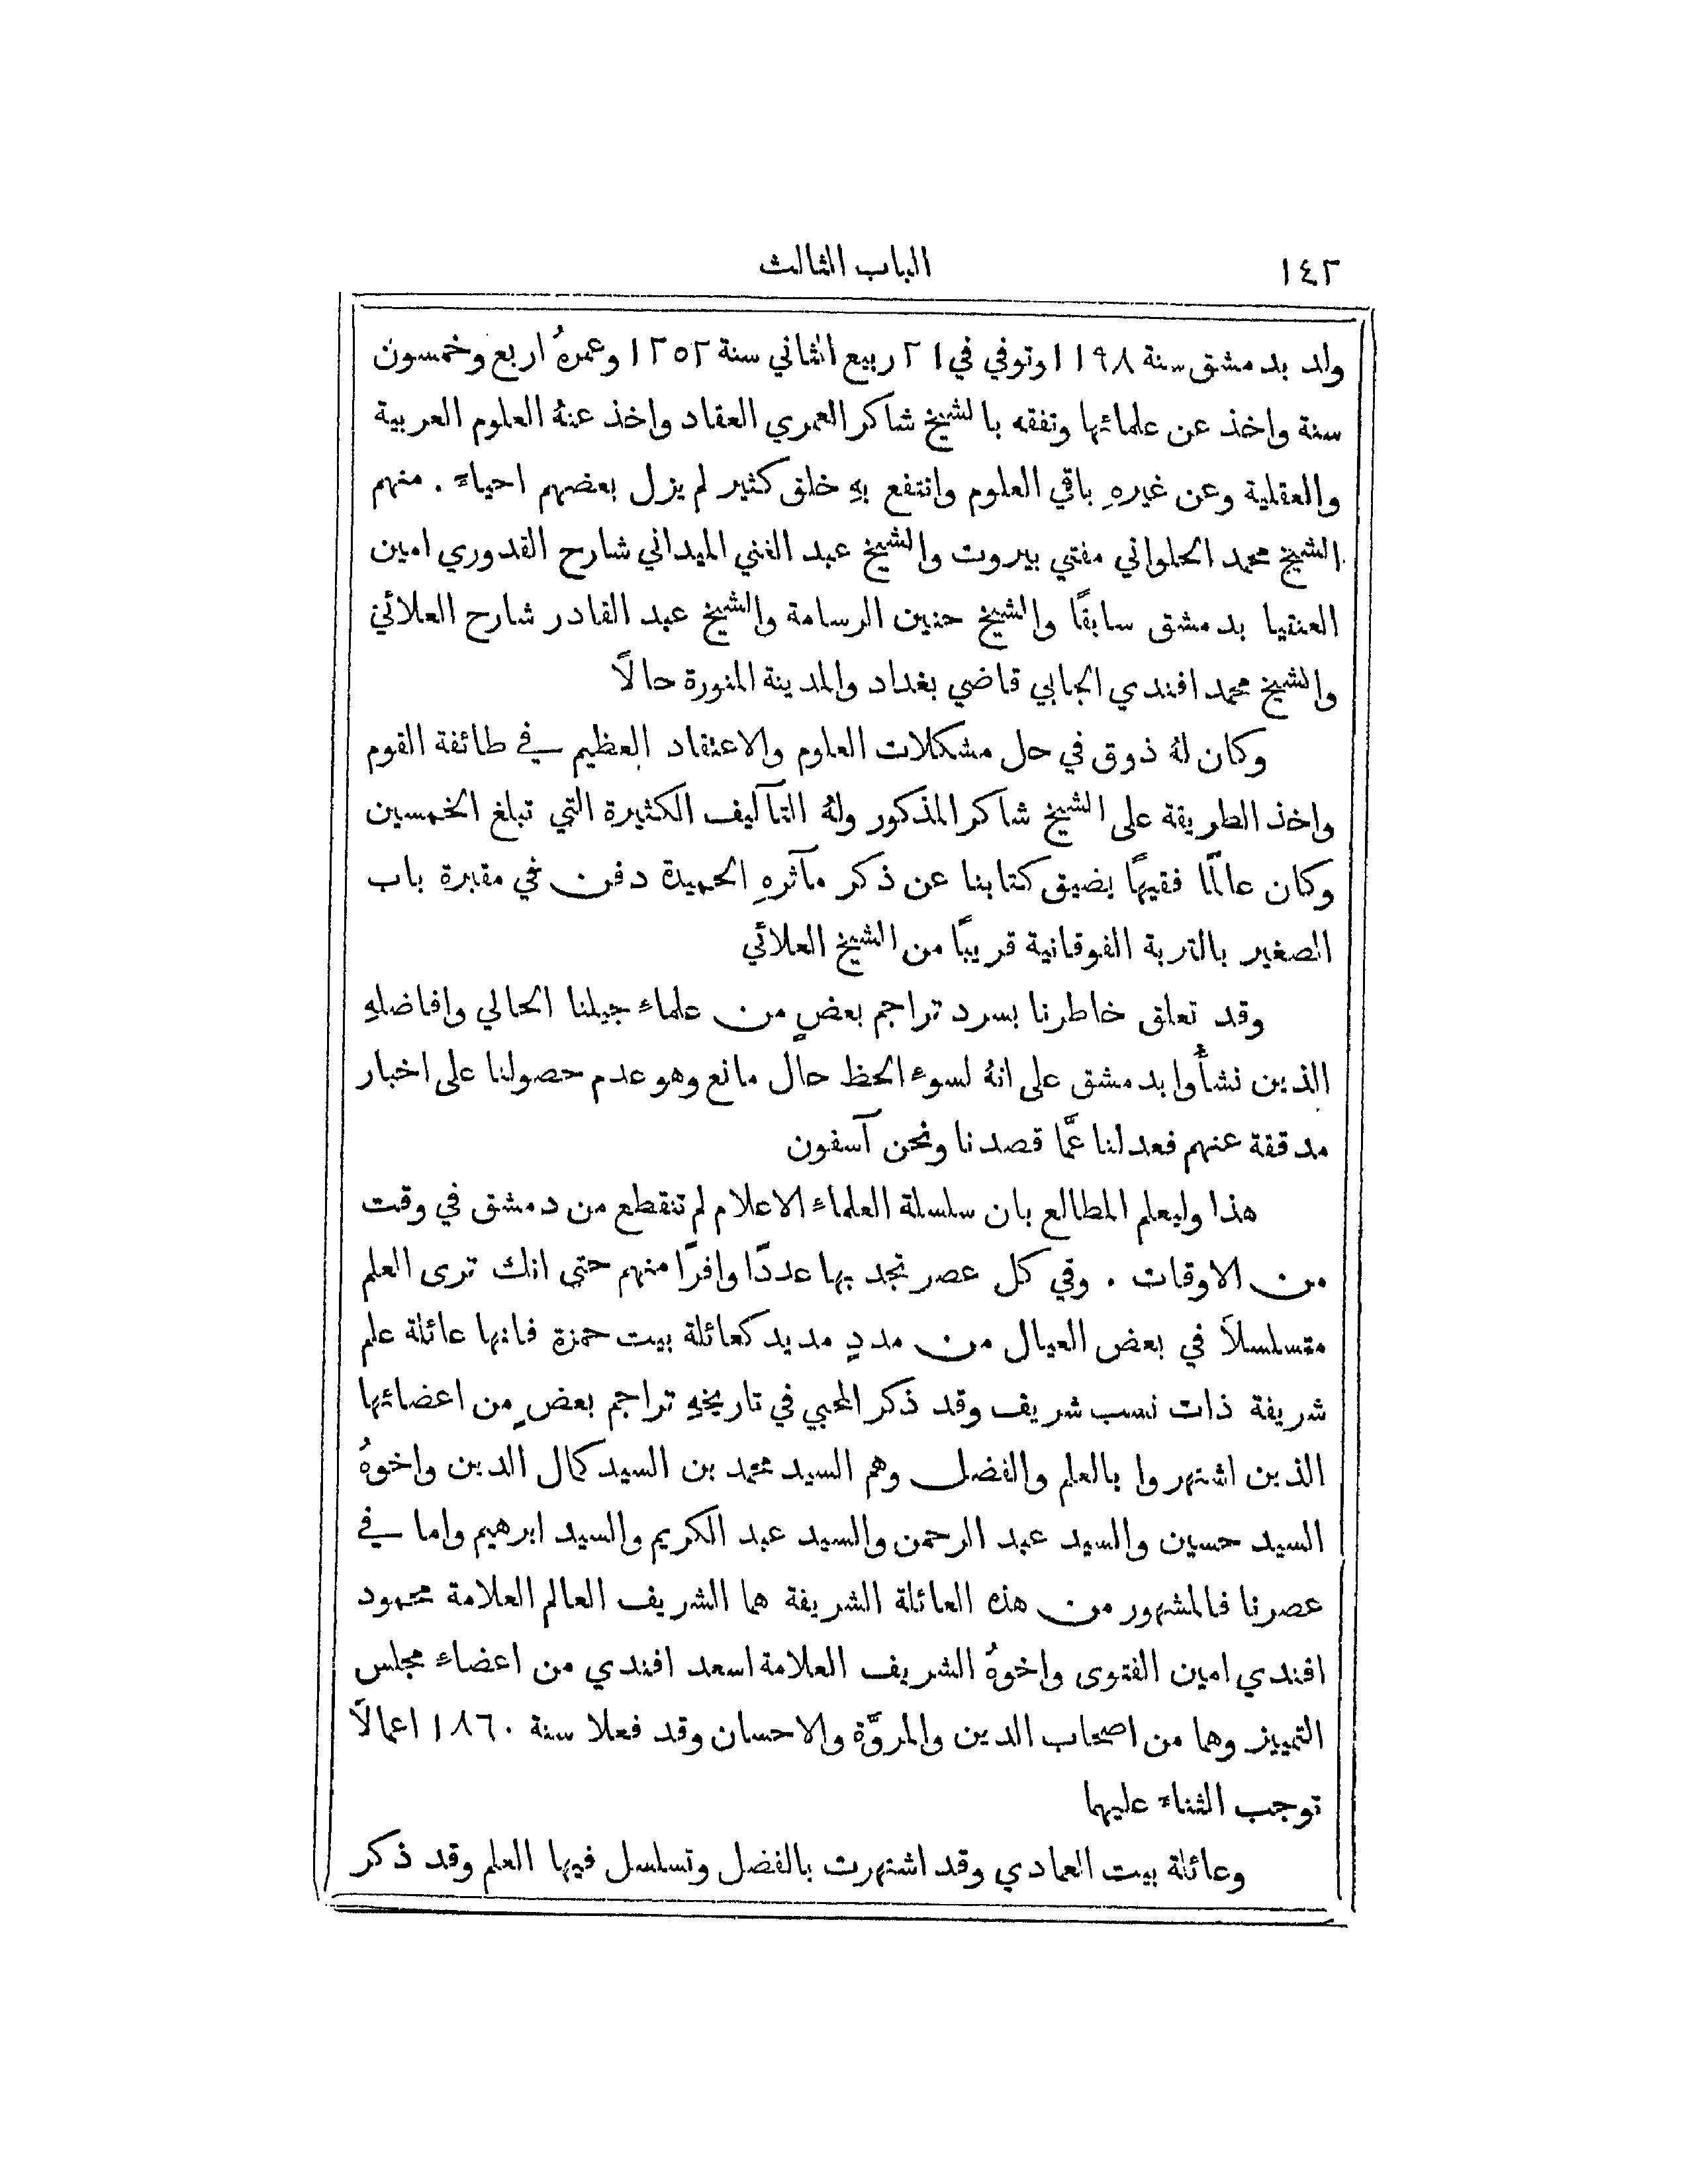 ١٤٢ الباب الثالث
ولد بدمشق سنة ١١٩٨ وتوفي في ٢١ ربيع الثاني سنة ١٢٥٢ وعمرهُ اربع وخمسون
سنة واخذ عن علمائها وتفقه بالشيخ شاكر العمري العقاد واخذ عنهُ العلوم العربية
والعقلية وعن غيرهِ باقي العلوم وانتفع بهِ خلق كثير لم يزل بعضهم احياءً . منهم
الشيخ محمد الحلواني مفتي بيروت والشيخ عبد الغني الميداني شارح القدوري امين
الفتيا بدمشق سابقًا والشيخ حنين الرسامة والشيخ عبد القادر شارح العلائي
والشيخ محمد افندي الجابي قاضي بغداد والمدينة المنورة حالاً
وكان لهُ ذوق في حل مشكلات العلوم والاعتقاد العظيم في طائفة القوم
واخذ الطريقة على الشيخ شاكر المذكور ولهُ التآليف الكثيرة التي تبلغ الخمسين
وكان عالمًا فقيهًا يضيق كتابنا عن ذكر مآثرهِ الحميدة دفن في مقبرة باب
الصغير بالتربة الفوقانية قريبًا من الشيخ العلائي
وقد تعلق خاطرنا بسرد تراجم بعضٍ من علماء جيلنا الحالي وافاضلهِ
الذين نشأُوا بدمشق على انهُ لسوء الحظ حال مانع وهو عدم حصولنا على اخبار
مدققة عنهم فعدلنا عمَّا قصدنا ونحن آسفون
هذا وليعلم المطالع بان سلسلة العلماء الاعلام لم تنقطع من دمشق في وقت
من الاوقات . وفي كل عصر تجد بها عددًا وافرًا منهم حتى انك ترى العلم
متسلسلاً في بعض العيال من مددٍ مديد كعائلة بيت حمزة فانها عائلة علم
شريفة ذات نسب شريف وقد ذكر المحبي في تاريخهِ تراجم بعضٍ من اعضائها
الذين اشتهروا بالعلم والفضل وهم السيد محمد بن السيد كمال الدين واخوهُ
السيد حسين والسيد عبد الرحمن والسيد عبد الكريم والسيد ابرهيم واما في
عصرنا فالمشهور من هذه العائلة الشريفة هما الشريف العالم العلامة محمود
افندي امين الفتوى واخوهُ الشريف العلامة اسعد افندي من اعضاء مجلس
التمييز وهما من اصحاب الدين والمروَّة والاحسان وقد فعلا سنة ١٨٦٠ اعمالاً
توجب الثناءَ عليهما
وعائلة بيت العمادي وقد اشتهرت بالفضل وتسلسل فيها العلم وقد ذكر